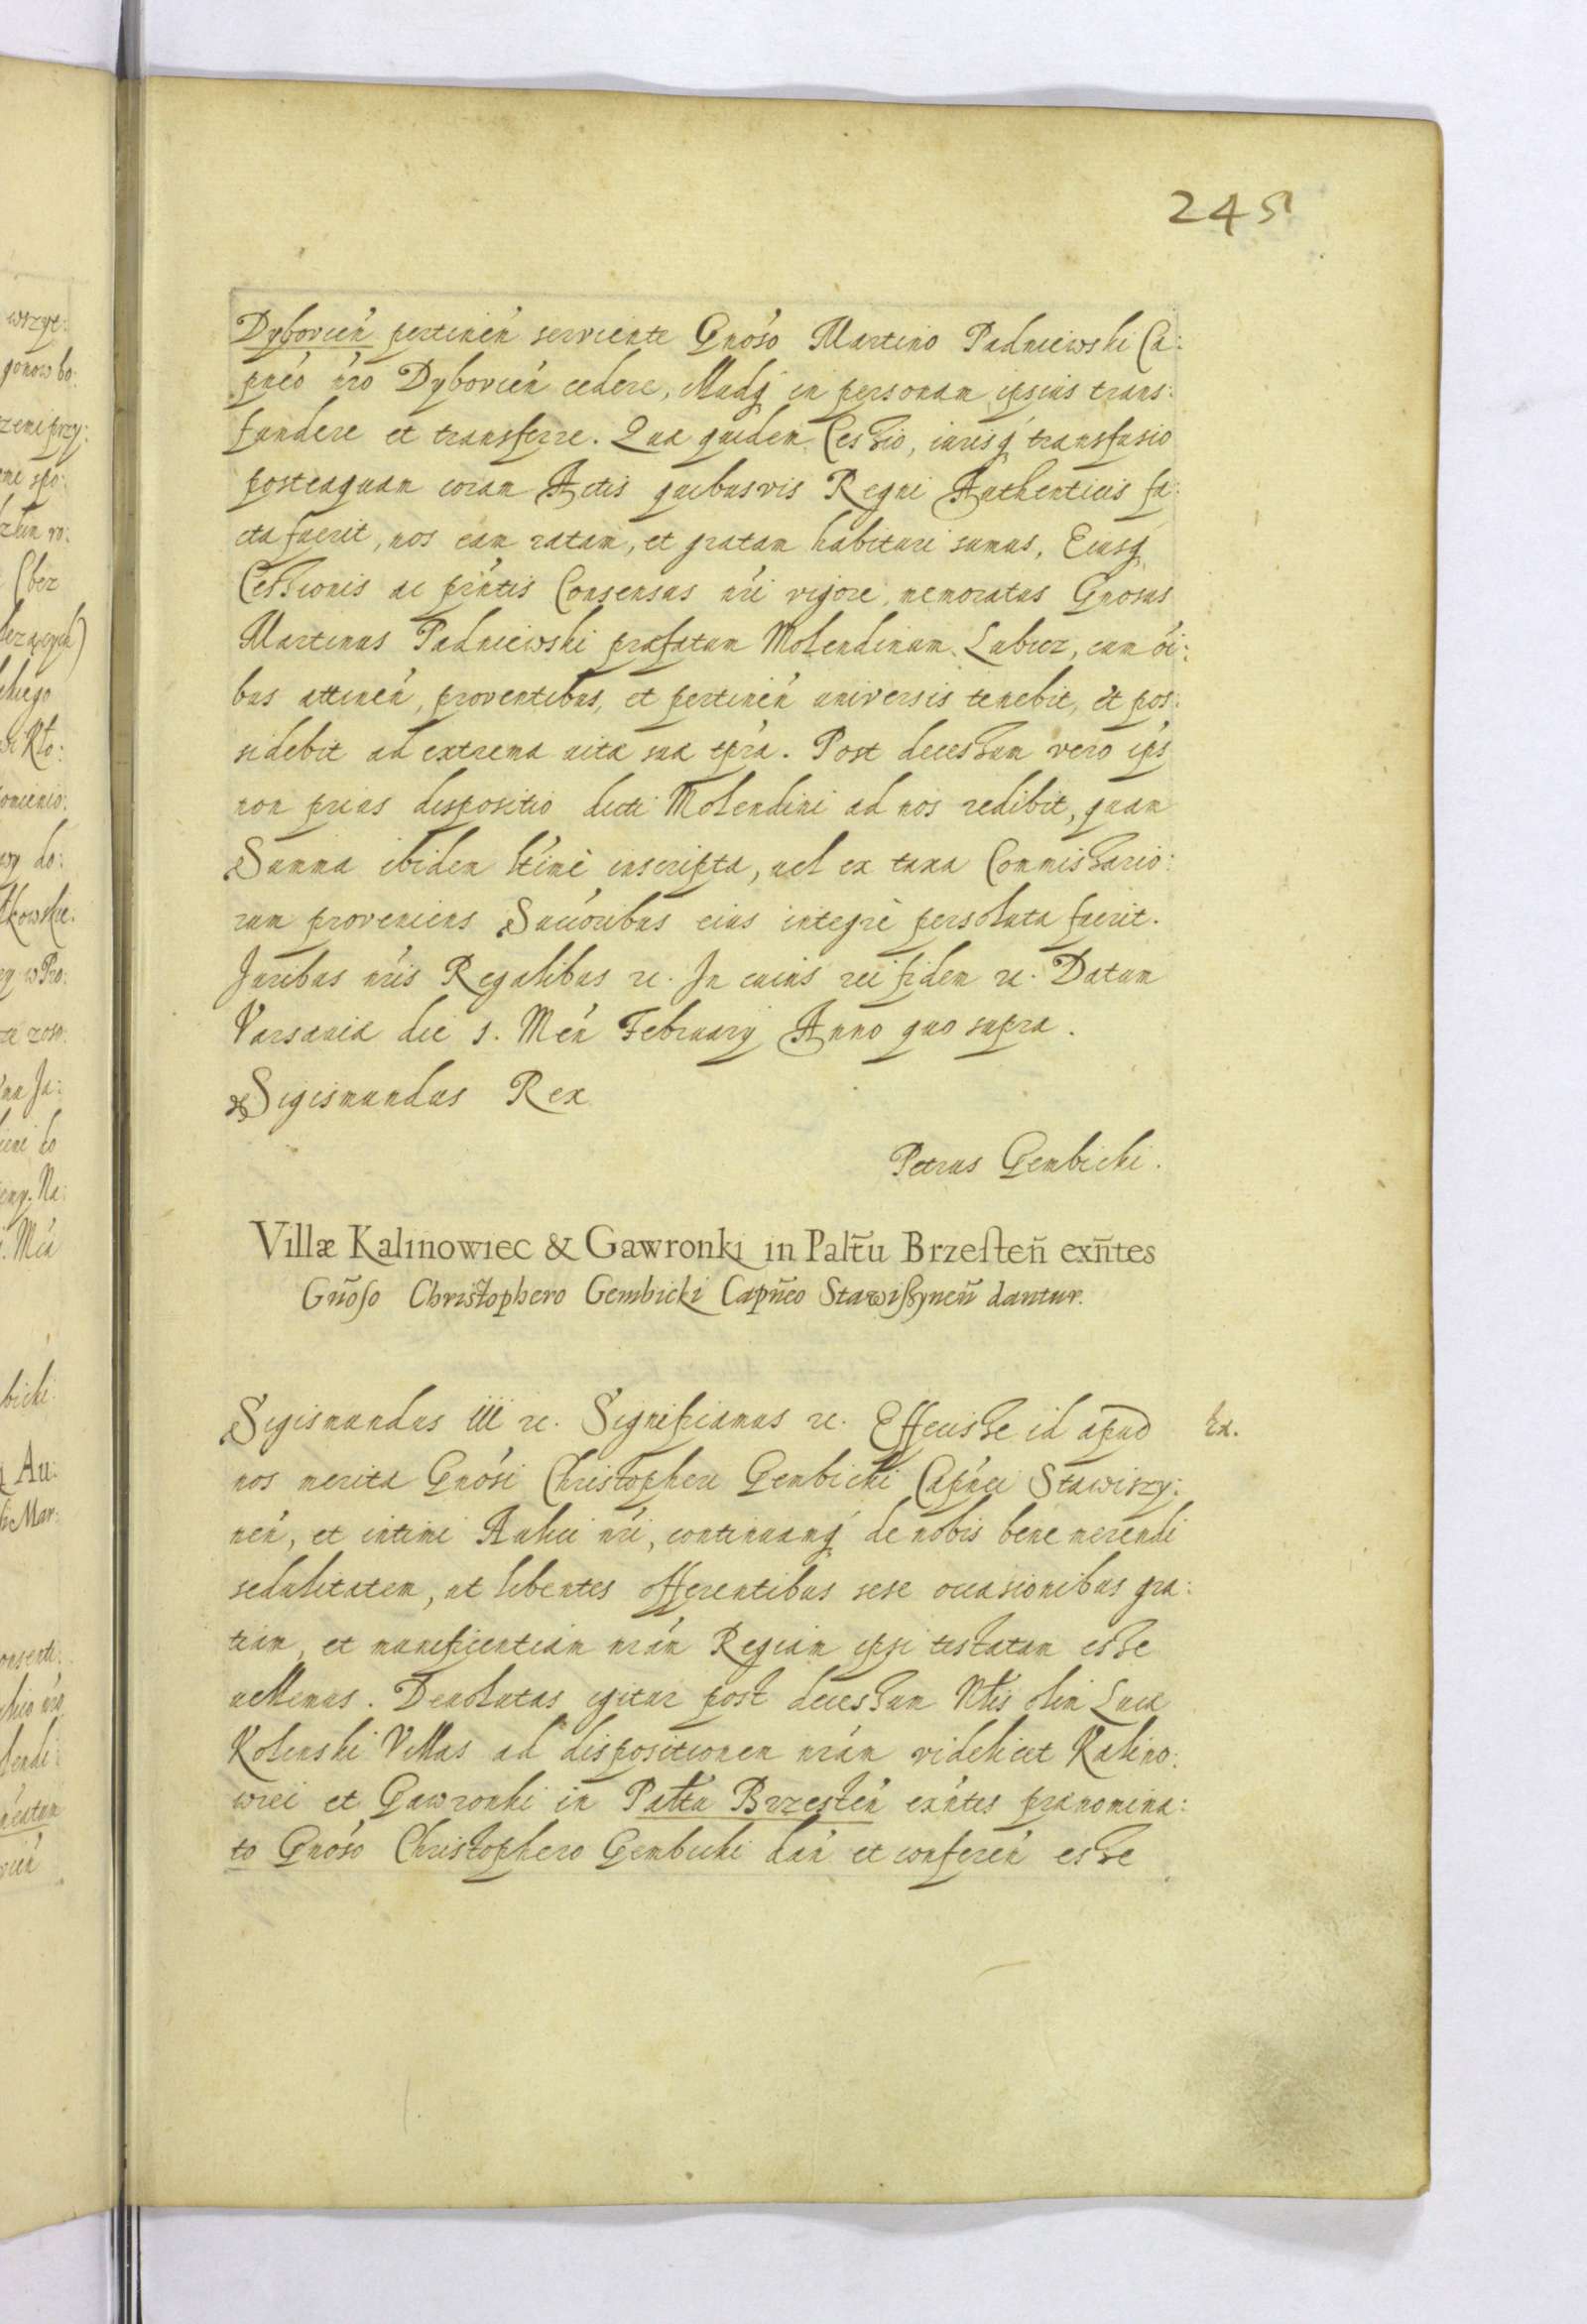 245
Dybovień pertineń serviente Gnóso Martino Padniewski Ca:
pneó nro Dybovień cedere, illudq in personam ipsius trans:
fundere et transferre. Quæ quidem Cessio, iurisq transfusio
posteaquam coram Actis quibusvis Regni Authenticis fa:
cta fuerit, nos eam ratam, et gratam habituri sumus, Eiusq
Cessionis ac prńtis Consensus nri vigore, memoratus Gnosus
Martinus Padniewski præfatum Molendinum Lubicz, cum oi:
bus attineń, proventibus, et pertineń universis tenebit, et pos:
sidebit ad extrema vitæ suæ tpra. Post decessum vero ips
non prius dispositio dicti Molendini ad nos redibit, quam
Summa ibidem ltime inscripta, vel ex taxa Commissario:
rum proveniens Succoribus eius integrè persoluta fuerit.
Juribus nris Regalibus rc. In cuius rei fidem rc. Datum
Varsaviæ die 1. Meń February Anno quo supra.
Sigismundus Rex
Petrus Gembicki.
Villæ Kalinowiec & Gawronki in Palt̃u Brzesteñ exñtes
Gñoso Christophero Gembicki Capñeo Stawiszyneñ dantur.
Sigismundus III rc. Significamus rc. Effecisse id apud
Ex.
nos merita Gnósi Christopheri Gembicki Capnei Stawiszy:
neń, et intimi Aulici nri, continuamq de nobis bene merendi
sedulitatem, ut libentes offerentibus sese occasionibus gra:
tiam, et munificentiam nram Regiam ipsi testatam esse
vellemus. Devolutas igitur post decessum Nlis olim Lucæ
Kolenski Villas ad dispositionem nram videlicet Kalino:
wiei et Gawronki in Paltu Brzesteń exńtes prænomina:
to Gnóso Christophero Gembicki dań et confereń esse